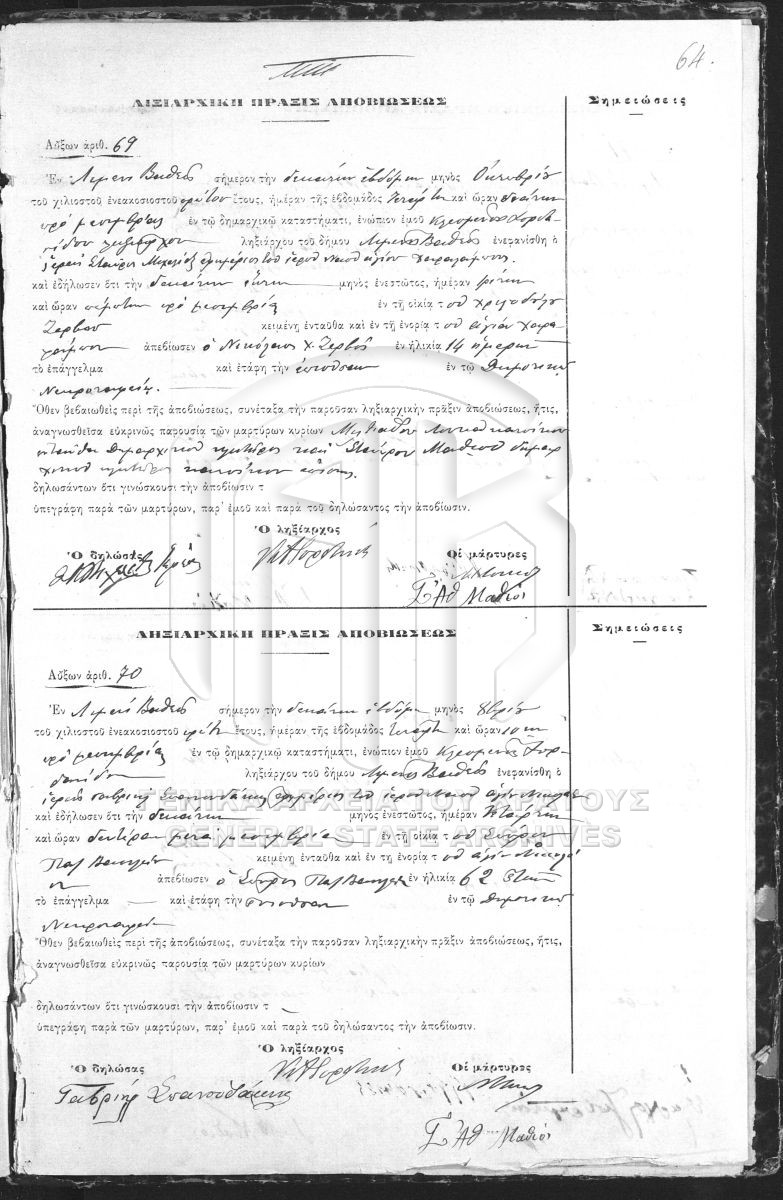 64.
ΛΗΞΙΑΡΧΙΚΗ ΠΡΑΞΙΣ ΑΠΟΒΙΩΣΕΩΣ
Σημειώσεις
Αὔξων ἀριθ. 69
Ἐν Λιμένι Βαθέος σήμερον τὴν δεκάτην ἑβδόμην μηνὸς Ὀκτωβρίου
τοῦ χιλιοστοῦ ἐνεακοσιοστοῦ πρώτου ἔτους, ἡμέραν τῆς ἑβδομάδος Τετάρτην καὶ ὥραν δεκάτην
πρὸ μεσημβρίας ἐν τῷ δημαρχικῷ καταστήματι, ἐνώπιον ἐμοῦ Κλεομένους
ληξιάρχου ληξιάρχου τοῦ δήμου Λιμένος Βαθέος ἐνεφανίσθη ὁ
ἱερεὺς Σταῦρος ἐφημέριος τοῦ ἱεροῦ Ναοῦ ἁγίου Χαραλάμπους
καὶ ἐδήλωσεν ὅτι τὴν δεκάτην ἕκτην μηνὸς ἐνεστῶτος, ἡμέραν τρίτην
καὶ ὥραν πέμπτην πρὸ μεσημβρίας ἐν τῇ οἰκίᾳ τοῦ Χριστοδούλου
Ζερβοῦ κειμένῃ ἐνταῦθα καὶ ἐν τῇ ἐνορίᾳ τοῦ ἁγίου Χαρα
λάμπους ἀπεβίωσεν ὁ Νικόλαος Χ. Ζερβός ἐν ἡλικίᾳ 14 ἡμερῶν
τὸ ἐπάγγελμα καὶ ἐτάφη τὴν ἐπιοῦσαν ἐν τῷ Δημοτικῷ
Νεκροταφείῳ.
Ὅθεν βεβαιωθεὶς περὶ τῆς ἀποβιώσεως, συνέταξα τὴν παροῦσαν ληξιαρχικὴν πρᾶξιν ἀποβιώσεως, ἥτις,
ἀναγνωσθεῖσα εὐκρινῶς παρουσίᾳ τῶν μαρτύρων κυρίων Μιλτιάδου κατοίκου
ἐνταῦθα Δημαρχικοῦ κλητῆρος καὶ Σταύρου Μαθιοῦ δημαρ
χικοῦ κλητῆρος κατοίκου ἐπίσης
δηλωσάντων ὅτι γινώσκουσι τὴν ἀποβίωσιν τ
ὑπεγράφη παρὰ τῶν μαρτύρων, παρ' ἐμοῦ καὶ παρὰ τοῦ δηλώσαντος τὴν ἀποβίωσιν.
Ὁ ληξίαρχος
Ὁ δηλώσας
Οἱ μάρτυρες
Σ Ἀθ Μαθιός
ΛΗΞΙΑΡΧΙΚΗ ΠΡΑΞΙΣ ΑΠΟΒΙΩΣΕΩΣ
Σημειώσεις
Αὔξων ἀριθ. 70
Ἐν Λιμένι Βαθέος σήμερον τὴν δεκάτην ἑβδόμην μηνὸς 8βρίου
τοῦ χιλιοστοῦ ἐνεακοσιοστοῦ πρώτου ἔτους, ἡμέραν τῆς ἑβδομάδος Τετάρτην καὶ ὥραν 10ην
πρὸ μεσημβρίας ἐν τῷ δημαρχικῷ καταστήματι, ἐνώπιον ἐμοῦ Κλεομένους
ληξιάρχου τοῦ δήμου Λιμένος Βαθέος ἐνεφανίσθη ὁ
ἱερεὺς Γαβριὴλ Σπανουδάκης ἐφημέριος τοῦ ἱεροῦ Ναοῦ ἁγίου Νικολάου
καὶ ἐδήλωσεν ὅτι τὴν δεκάτην μηνὸς ἐνεστῶτος, ἡμέραν Τετάρτην
καὶ ὥραν δευτέραν μετὰ μεσημβρίαν ἐν τῇ οἰκίᾳ τοῦ Σπύρου
κειμένῃ ἐνταῦθα καὶ ἐν τῇ ἐνορίᾳ τοῦ ἁγίου Νικολά
ου ἀπεβίωσεν ὁ Σπῦρος ἐν ἡλικίᾳ 62 ἐτῶν
τὸ ἐπάγγελμα καὶ ἐτάφη τὴν ἐπιοῦσαν ἐν τῷ Δημοτικῷ
Νεκροταφείῳ
Ὅθεν βεβαιωθεὶς περὶ τῆς ἀποβιώσεως, συνέταξα τὴν παροῦσαν ληξιαρχικὴν πρᾶξιν ἀποβιώσεως, ἥτις,
ἀναγνωσθεῖσα εὐκρινῶς παρουσίᾳ τῶν μαρτύρων κυρίων
δηλωσάντων ὅτι γινώσκουσι τὴν ἀποβίωσιν τ
ὑπεγράφη παρὰ τῶν μαρτύρων, παρ' ἐμοῦ καὶ παρὰ τοῦ δηλώσαντος τὴν ἀποβίωσιν.
Ὁ ληξίαρχος
Ὁ δηλώσας
Οἱ μάρτυρες
Γαβριὴλ Σπανουδάκης
Σ Ἀθ Μαθιός
ΓΕΝΙΚΑ ΑΡΧΕΙΑ ΤΟΥ ΚΡΑΤΟΥΣ
GENERAL STATE ARCHIVES